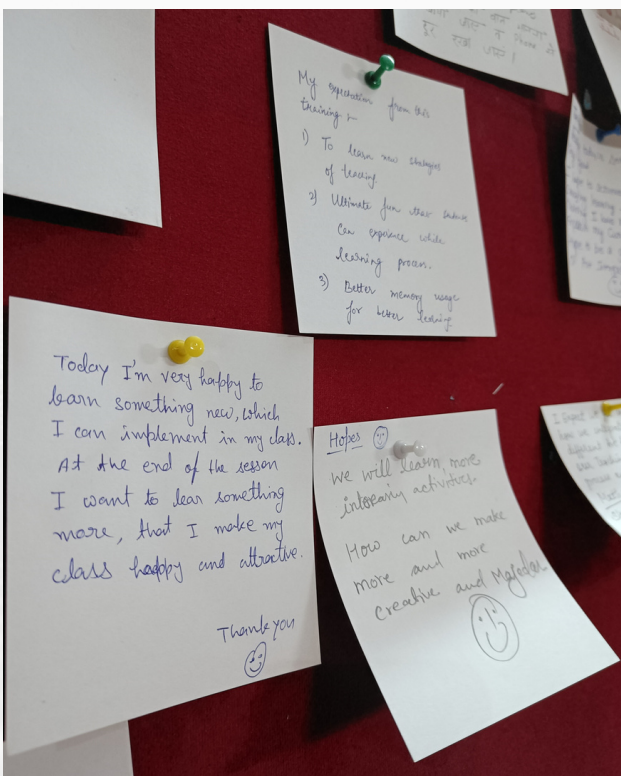 दूर रखा जाए।
My expectation from this
training :-
1) To learn new strategies
of teaching
2) Ultimate fun that
can experience while
learning process.
3) Better memory usage
for better learning
Today I'm very happy to
learn something new, which
I can implement in my class.
At the end of the sesson
I want to lear something
more, that I make my
class happy and attractive.
Thank you
Hopes
we will learn more
activities.
How can we make
more and more
creative and Majedar
I expect